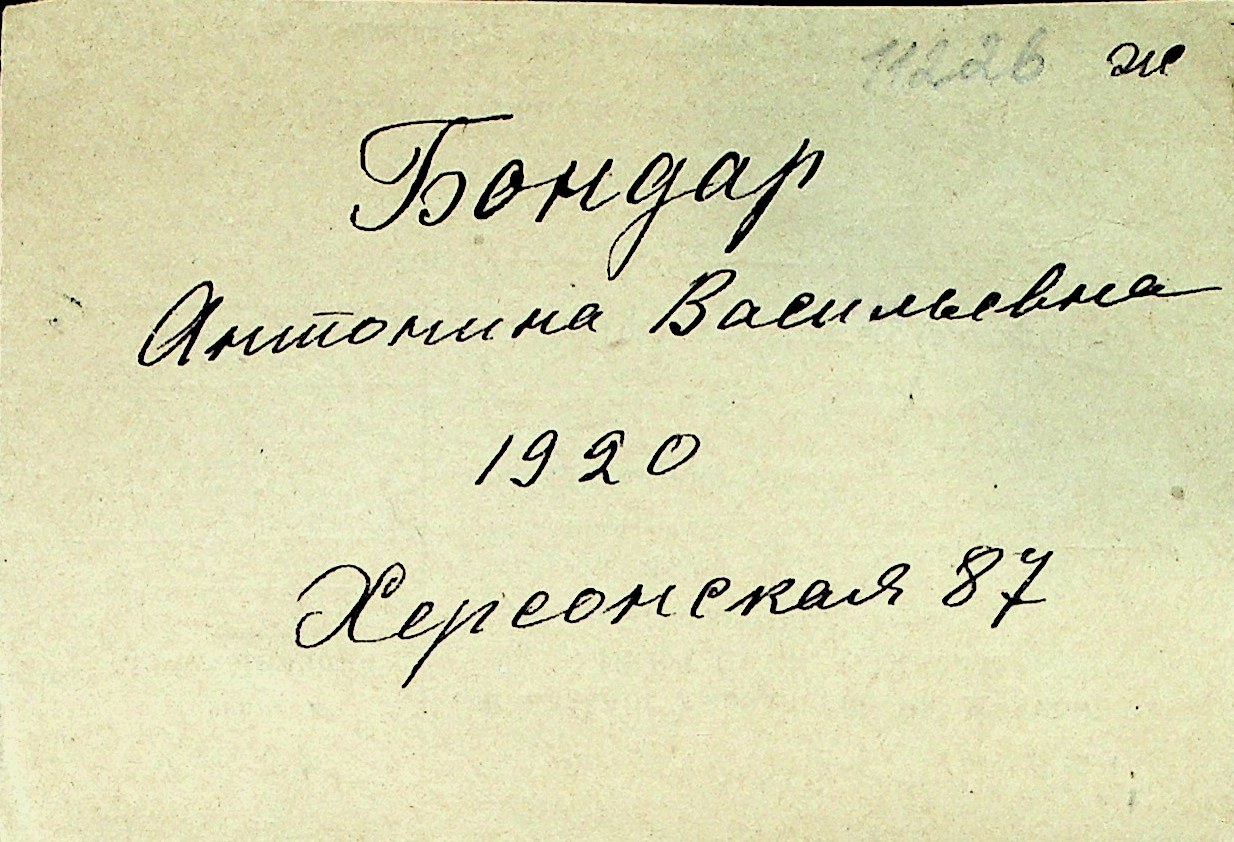 11226 ж
Бондар
Антонина Васильевна
1920
Херсонская 87